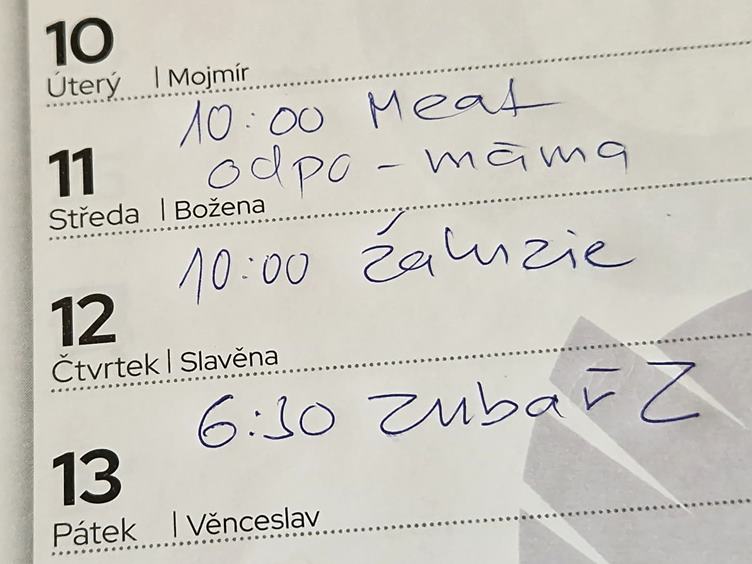 10
Úterý | Mojmír
10:00 Meat
odpo - máma
11
Středa | Božena
10:00 žaluzie
12
Čtvrtek | Slavěna
6:30 zubař Z
13
Pátek | Věnceslav